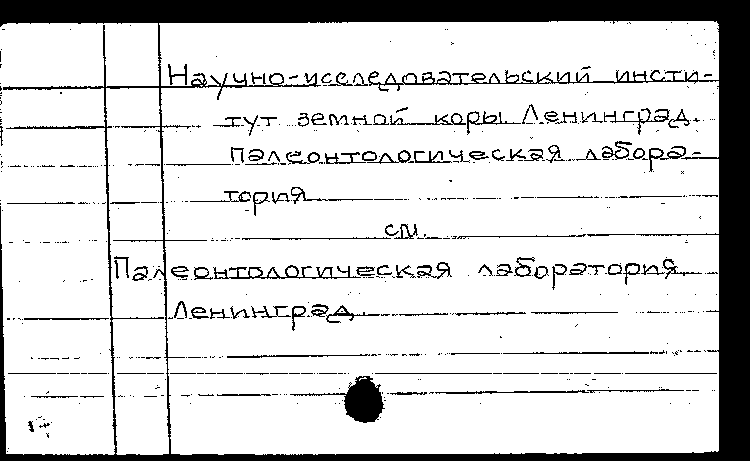 Научно-исследовательский инсти-
тут земной коры. Ленинград.
Палеонтологическая лабора-
тория
см.
Палеонтологическая лаборатория.
Ленинград.